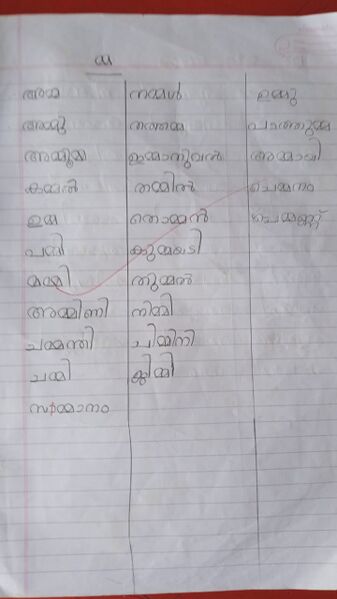 മ്മ
അമ്മ നമ്മൾ ഉമ്മു
അമ്മു തത്തമ്മ പാത്തുമ്മ
അമ്മൂമ്മ ഇമ്മാനുവൽ അമ്മാവി
കമ്മൽ തമ്മിൽ ചെമ്മനം
ഉമ്മ തൊമ്മൻ ചെമ്മണ്ണ്
പമ്മി കുമ്മായടി
മമ്മി തുമ്മൽ
അമ്മിണി നിമ്മി
ചമ്മന്തി ചിമ്മിനി
ചമ്മി ജിമ്മി
സമ്മാനം